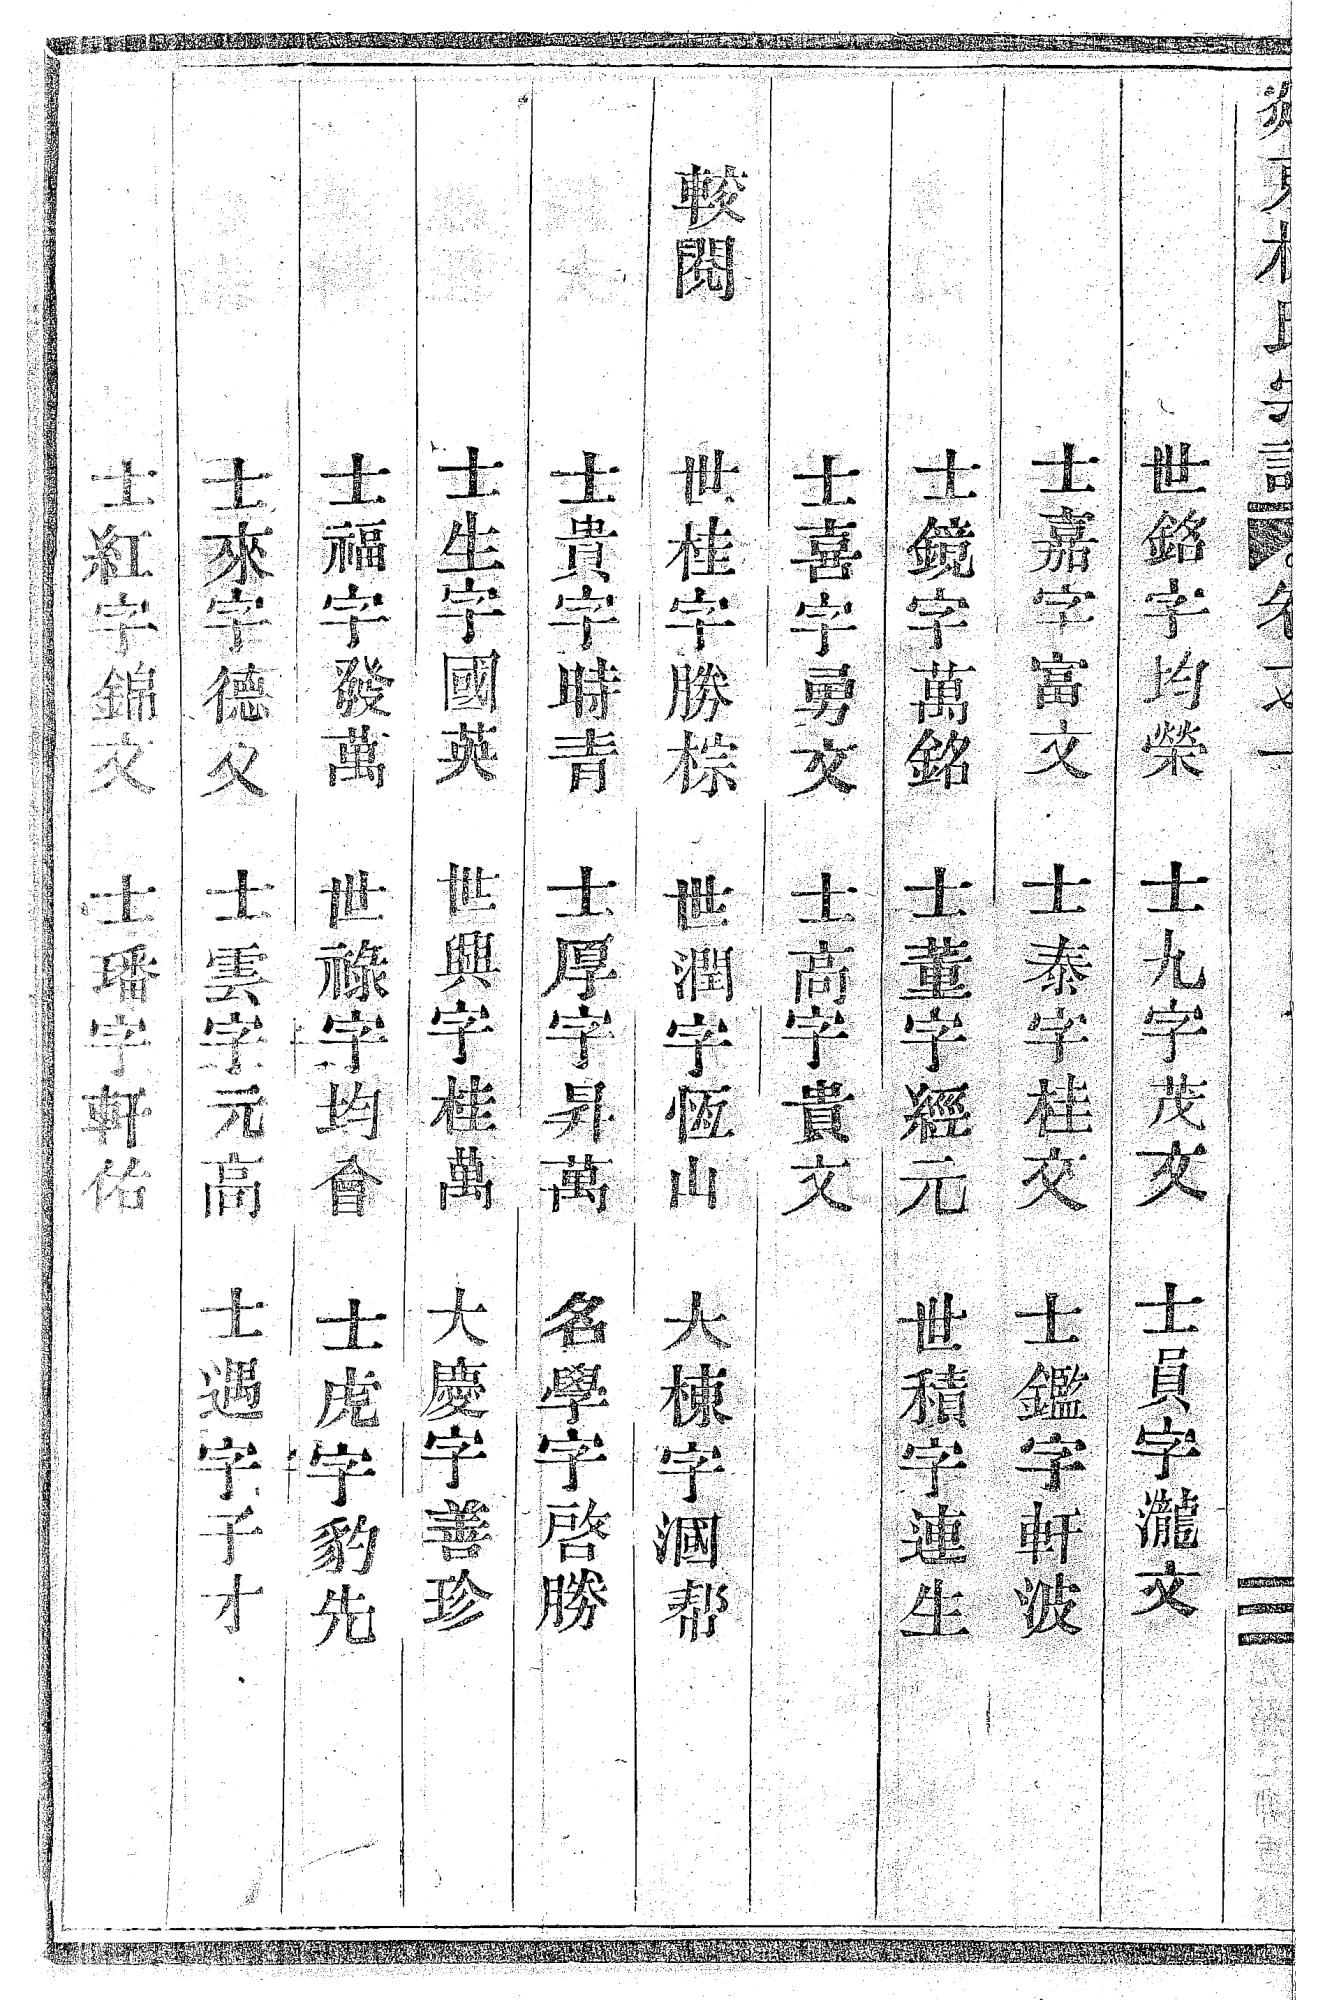 世銘字均榮　士九字茂文　士員字瀧文
士嘉字富文　士泰字桂文　士鑑字軒波
士鏡字萬銘　士董字經元　世積字連生
士喜字勇文　士高字貴文
較閱　世桂字勝棕　世潤字恆山　大棟字涸帮
士貴字時青　士厚字昇萬　名學字啓勝
士生字國英　世興字桂萬　大慶字善珍
士福字發萬　世祿字均會　士虎字豹先
士來字德文　士雲字元高　士遇字子才
士紅字錦文　士璠字軒佑